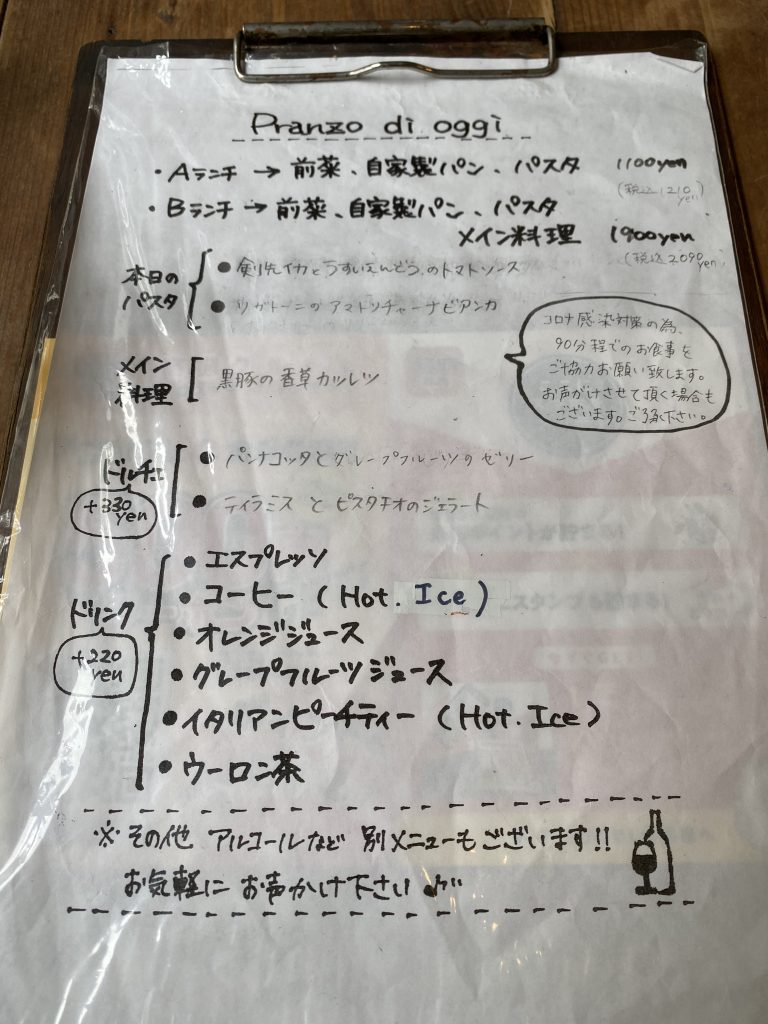 Pranzo di oggi
・Aランチ → 前菜、自家製パン、パスタ 1100yen
(税込1210yen)
・Bランチ → 前菜、自家製パン、パスタ
メイン料理 1900yen
(税込2090yen)
本日の
パスタ
●剣先イカとうすいえんどうのトマトソース
●リガトーニのアマトリチャーナビアンカ
コロナ感染対策の為、
90分程でのお食事を
ご協力お願い致します。
お声がけさせて頂く場合も
ございます。ご了承下さい。
メイン
料理
黒豚の香草カツレツ
ドルチェ
+330
yen
●パンナコッタとグレープフルーツのゼリー
●ティラミスとピスタチオのジェラート
ドリンク
+220
yen
●エスプレッソ
●コーヒー (Hot. Ice)
●オレンジジュース
●グレープフルーツジュース
●イタリアンピーチティー (Hot. Ice)
●ウーロン茶
※その他 アルコールなど 別メニューもございます!!
お気軽に お声かけ下さい♪